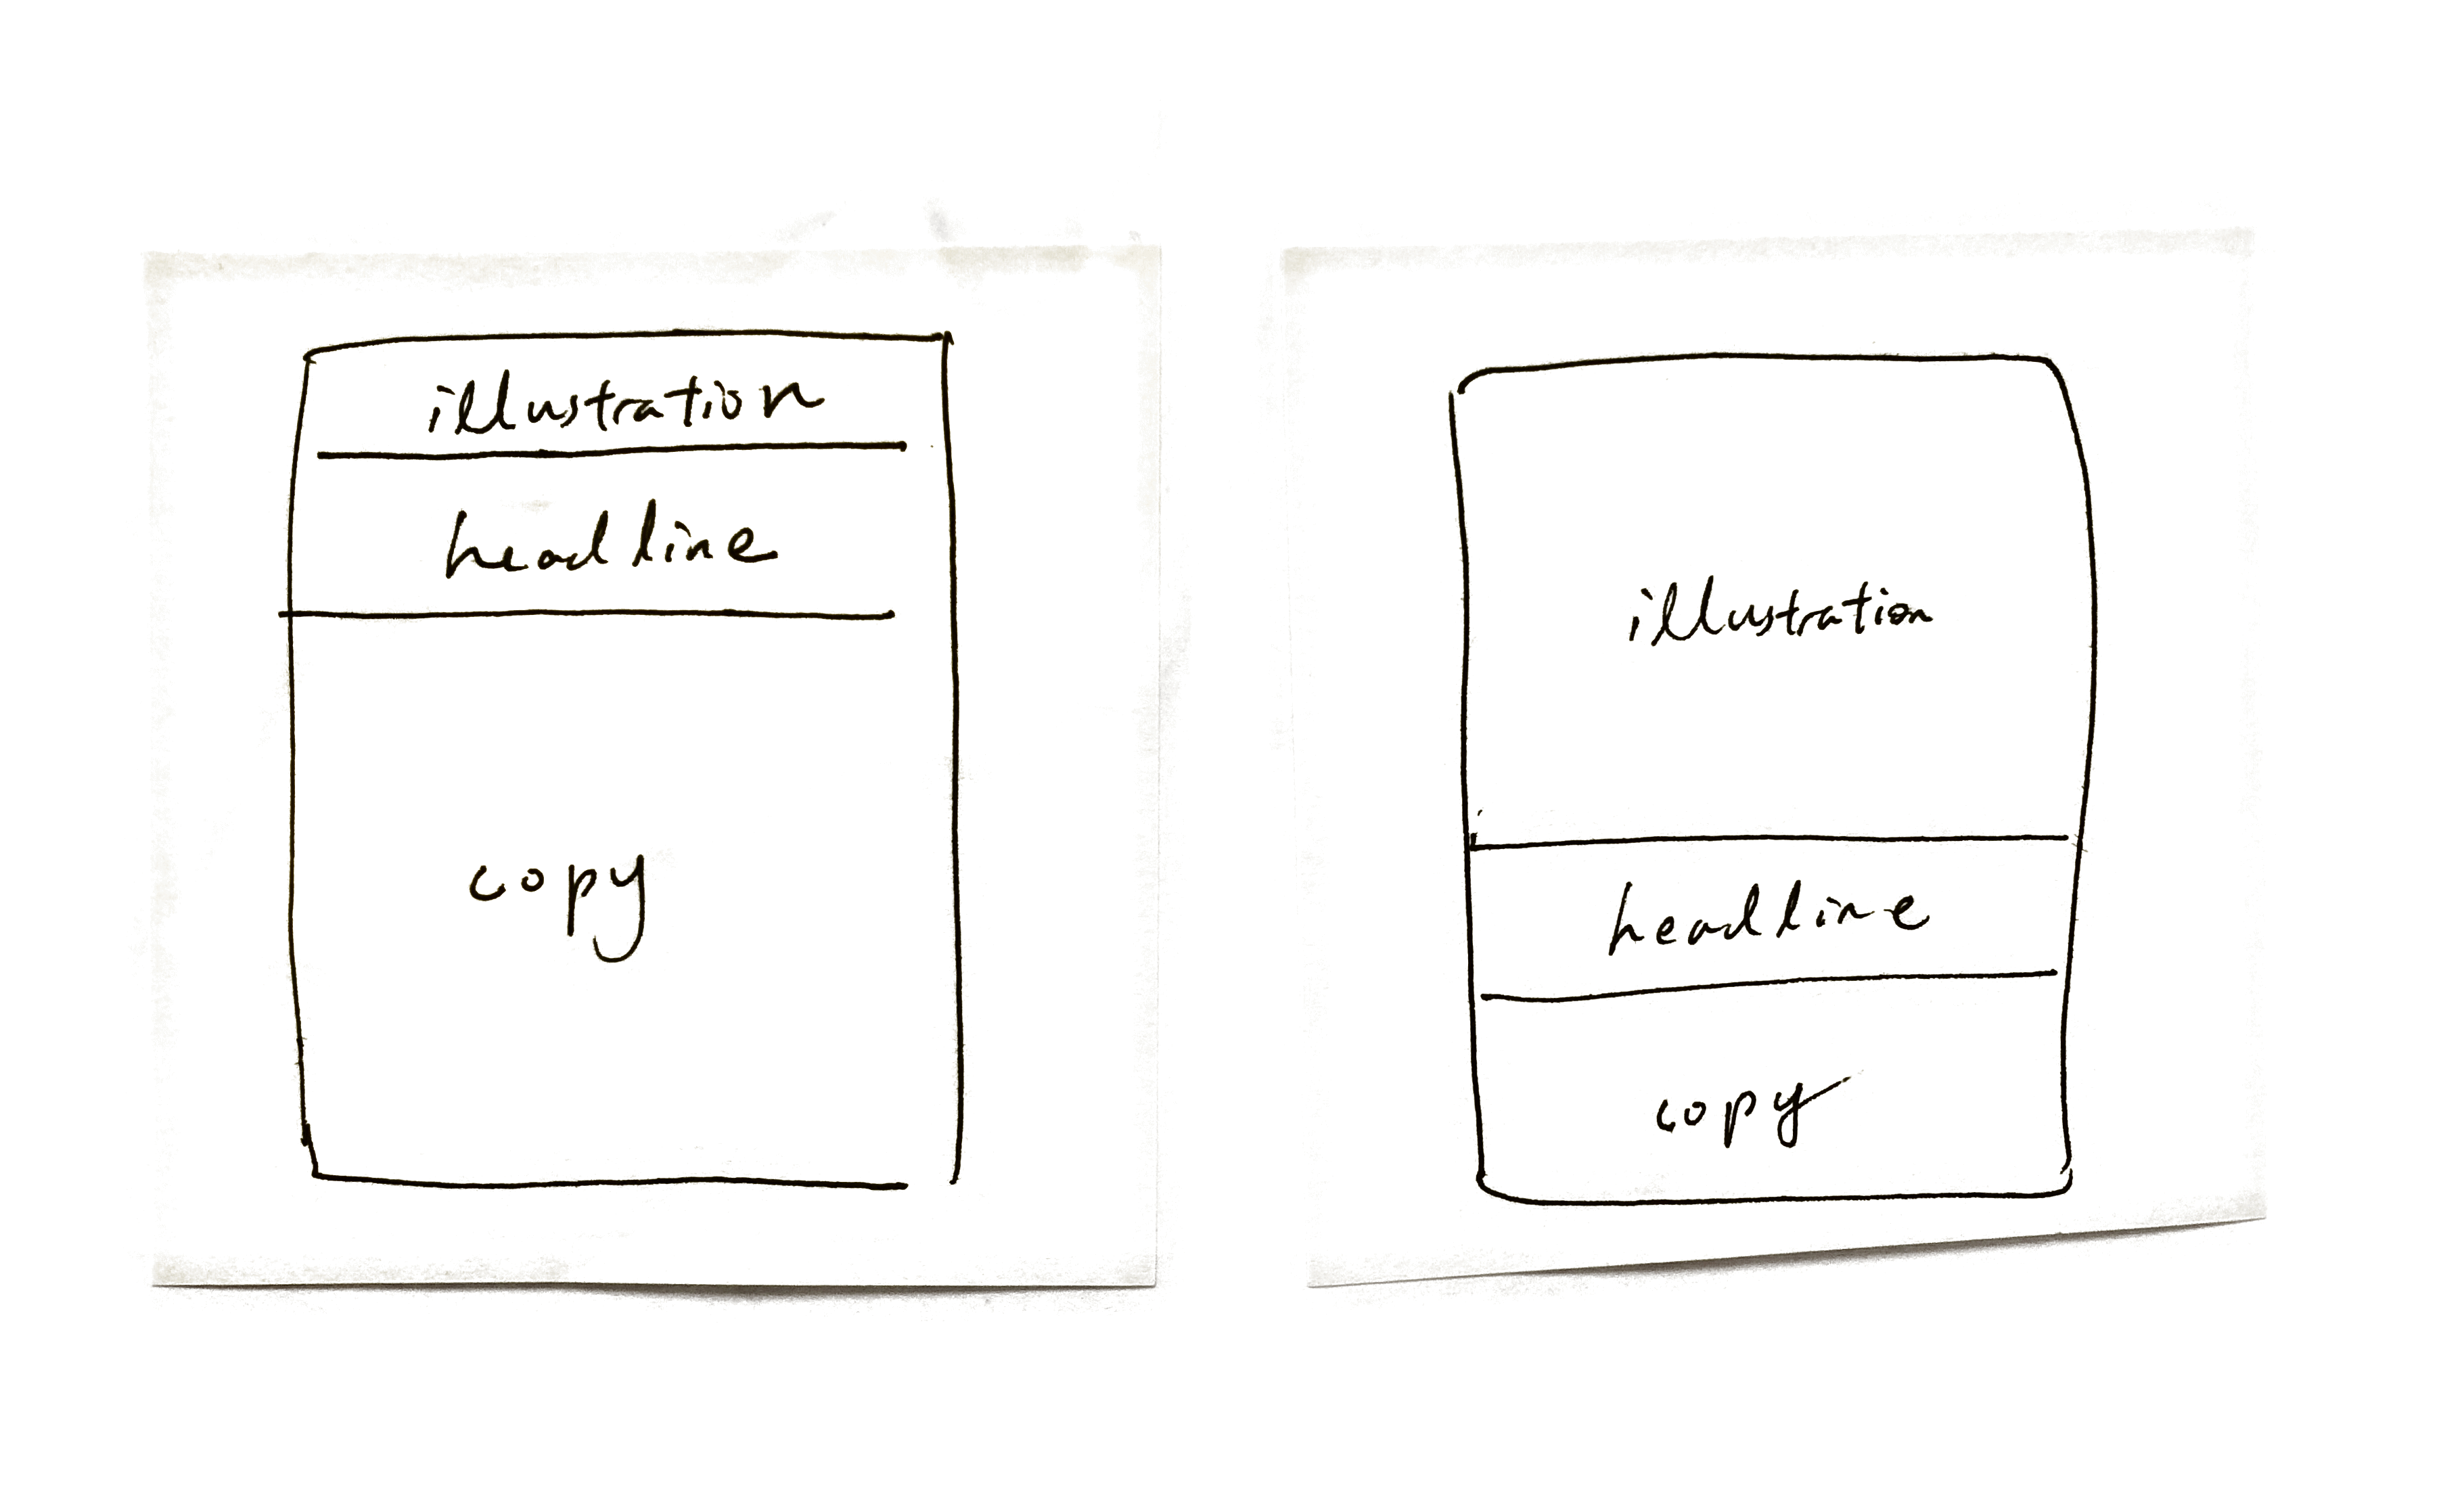 illustration
headline
copy
illustration
headline
copy